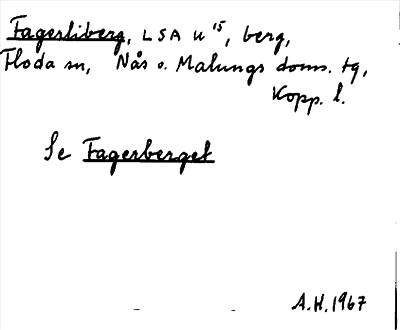 Fagerliberg, LSA U 15, berg,
Floda sn, Nås o. Malungs doms. tg,
Kopp. l.
Se Fagerberget
A.H. 1967